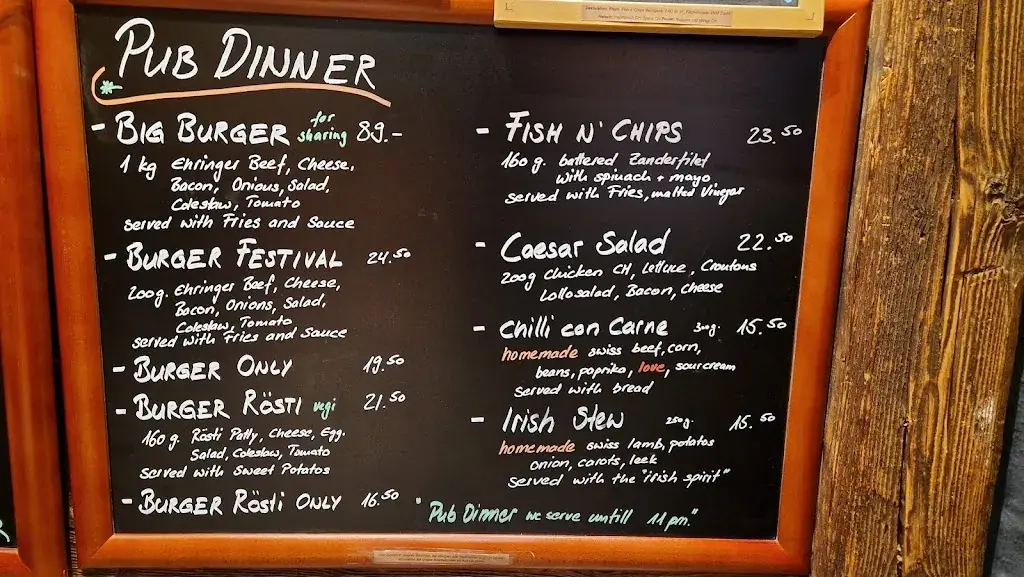 PUB DINNER
- BIG BURGER for sharing 89.-
1 kg Ehringer Beef, Cheese,
Bacon, Onions, Salad,
Coleslaw, Tomato
served with Fries and Sauce
- BURGER FESTIVAL 24.50
200g. Ehringer Beef, Cheese,
Bacon, Onions, Salad,
Coleslaw, Tomato
served with Fries and Sauce
- BURGER ONLY 19.50
- BURGER RÖSTI vegi 21.50
160 g. Rösti Patty, Cheese, Egg.
Salad, Coleslaw, Tomato
served with Sweet Potatos
- BURGER RÖSTI ONLY 16.50
- FISH N' CHIPS 23.50
160 g. battered Zanderfilet
with spinach + mayo
served with Fries, malted Vinegar
- Caesar Salad 22.50
200g Chicken CH, Lettuce, Croutons
Lollosalad, Bacon, cheese
- Chilli con Carne 300g. 15.50
homemade swiss beef, corn,
beans, paprika, love, sourcream
served with bread
- Irish Stew 250g. 15.50
homemade swiss lamb, potatos
onion, carots, leek
served with the "irish spirit"
"Pub Dinner we serve untill 11 pm."